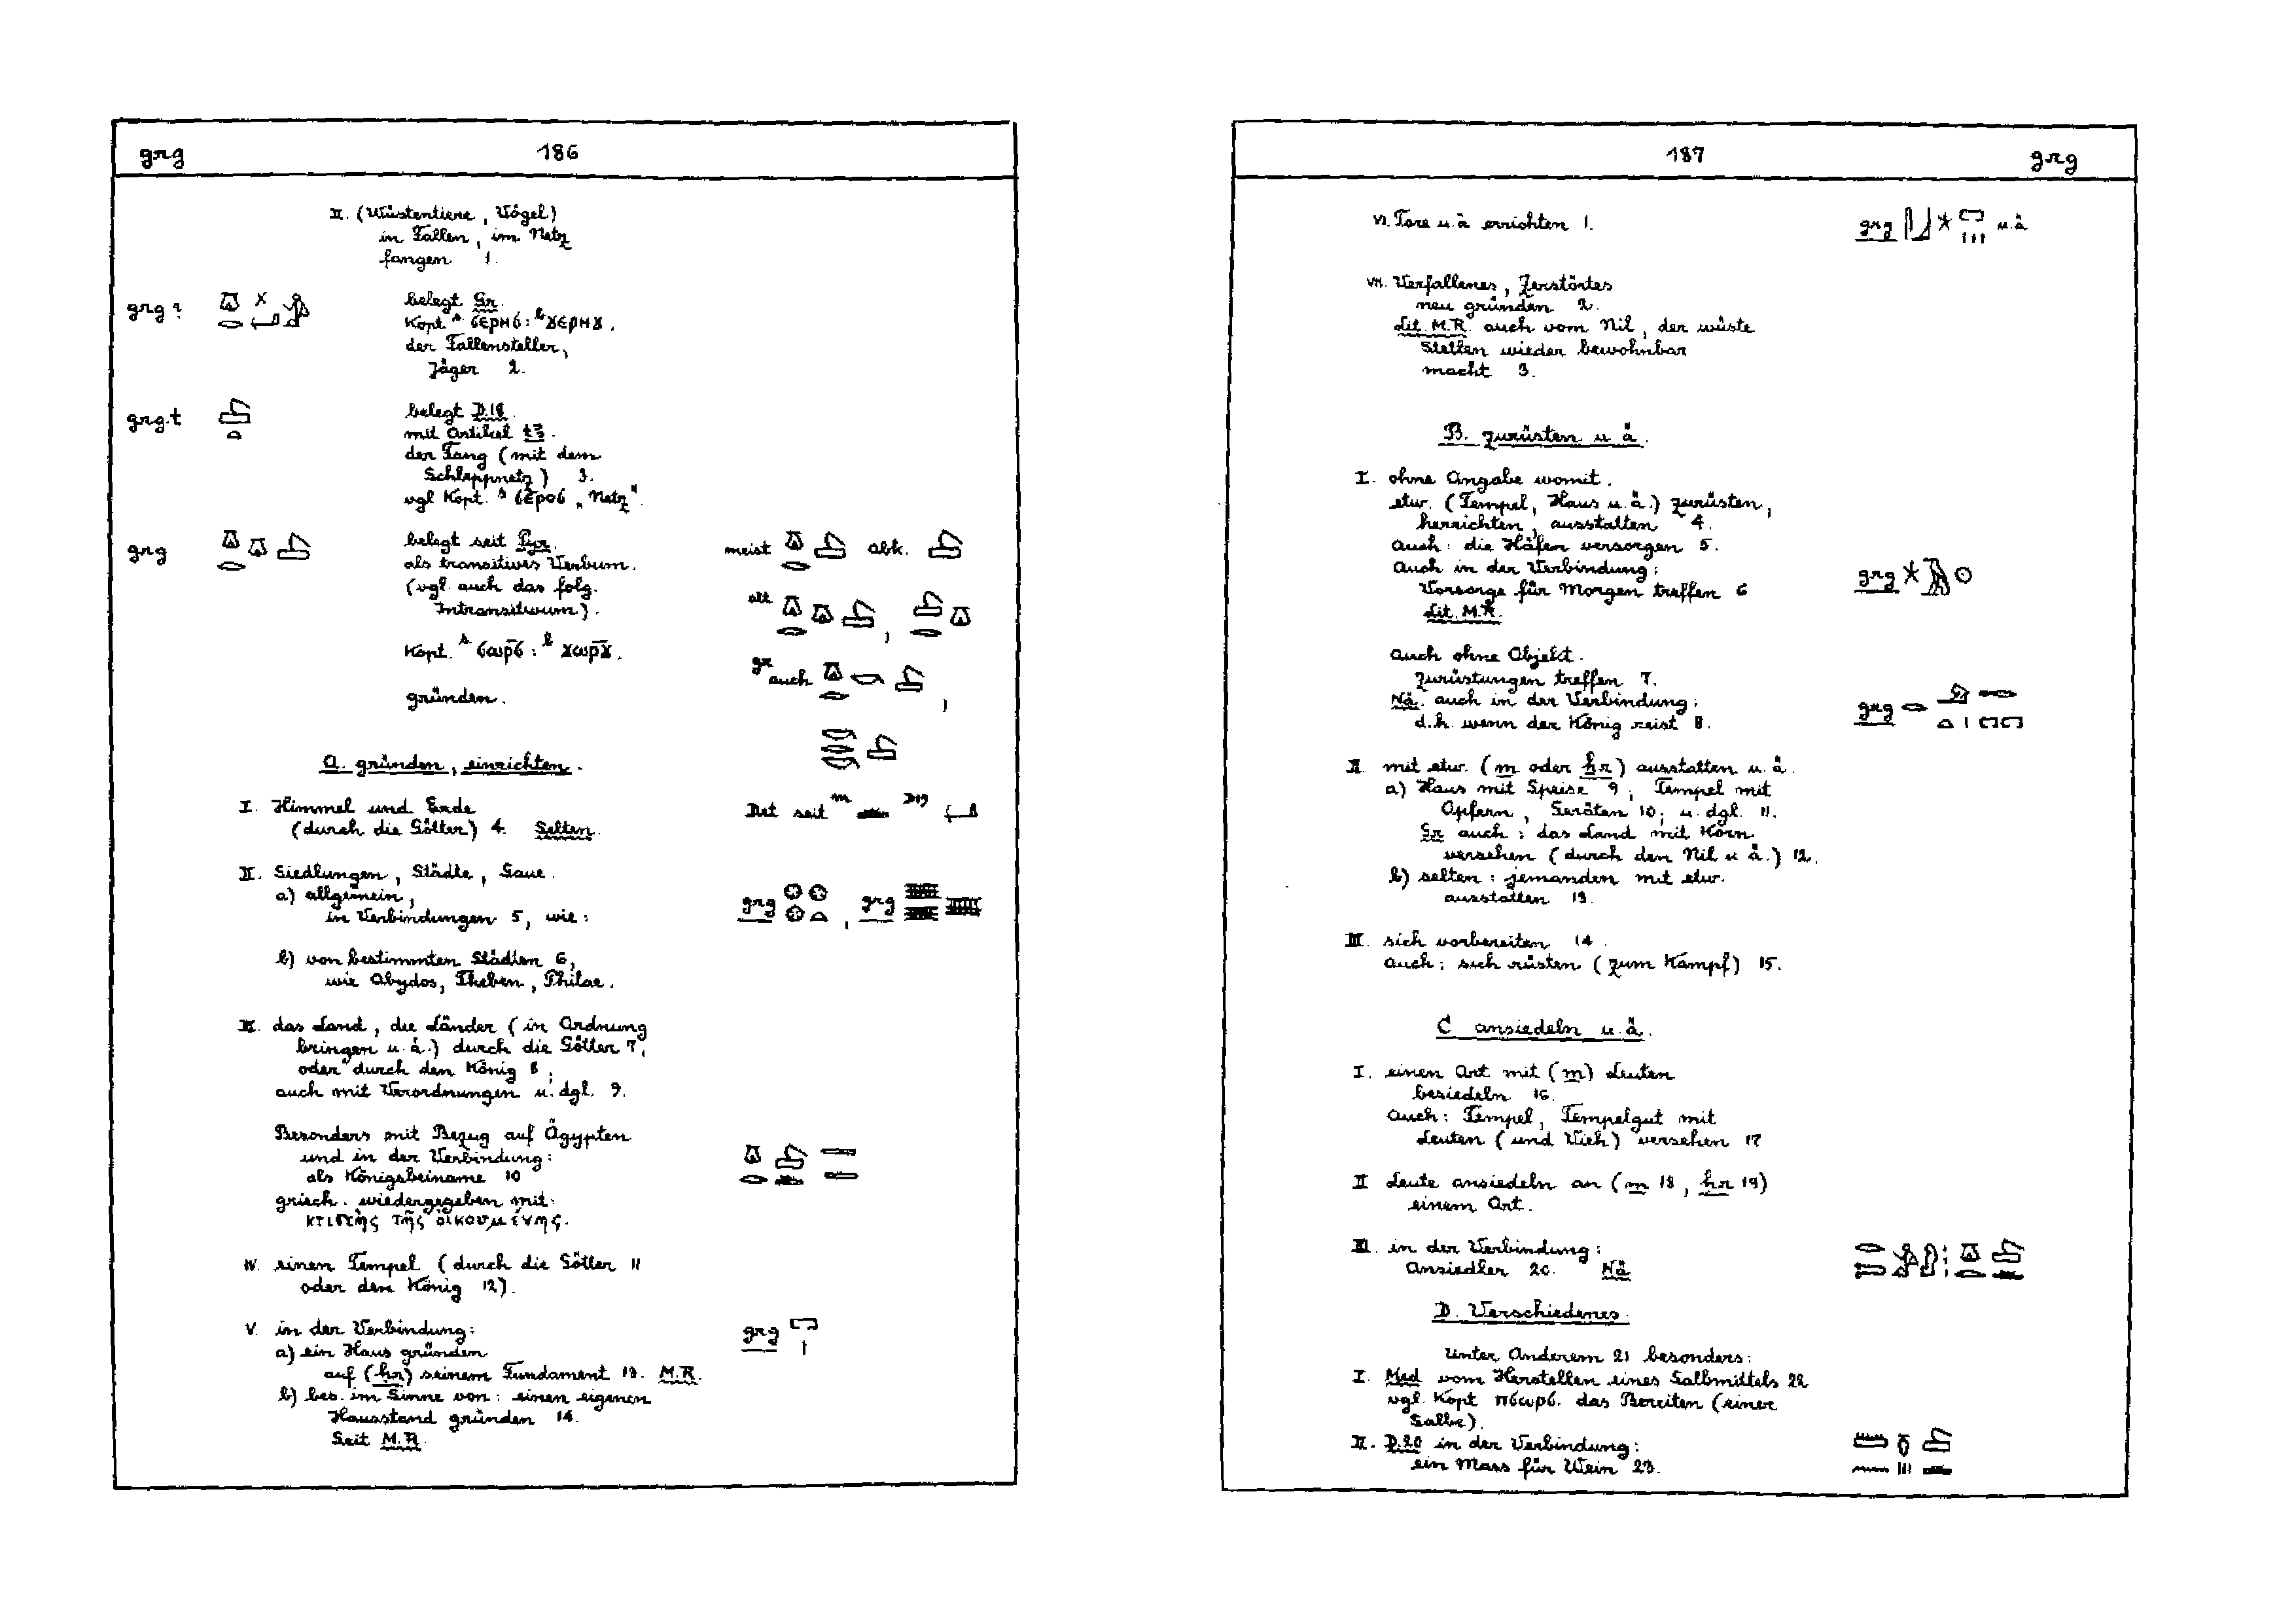 grg 186
II. (Wüstentiere, Vögel)
in Fallen, im Netz
fangen 1.
grg belegt Gr.
Kopt. s ϭⲉⲣⲏϭ: b ϫⲉⲣⲏϫ.
der Fallensteller,
Jäger 2.
grg.t belegt D.18.
mit Artikel t3.
der Fang (mit dem
Schleppnetz) 3.
vgl Kopt. s ϭⲉⲣⲟϭ „Netz".
grg belegt seit Pyr. meist abk.
als transitives Verbum.
(vgl. auch das folg.
Intransitivum). alt ,
Kopt. s ϭⲱⲣϭ: b ϫⲱⲣϫ.
gr auch ,
gründen.
A. gründen, einrichten.
I. Himmel und Erde Det seit D19
(durch die Götter) 4. Selten.
II. Siedlungen, Städte, Gaue.
a) allgemein, grg , grg
in Verbindungen 5, wie:
b) von bestimmten Städten 6,
wie Abydos, Theben, Philae.
III. das Land, die Länder (in Ordnung
bringen u.ä.) durch die Götter 7,
oder durch den König 8;
auch mit Verordnungen u. dgl. 9.
Besonders mit Bezug auf Ägypten
und in der Verbindung:
als Königsbeiname 10
griech. wiedergegeben mit:
κτιστὴς τῆς οἰκουμένης.
IV. einen Tempel (durch die Götter 11
oder den König 12).
V. in der Verbindung: grg
a) ein Haus gründen
auf (ḥr) seinem Fundament 13. M.R.
b) bes. im Sinne von: einen eigenen
Hausstand gründen 14.
Seit M.R.
187 grg
VI. Tore u.ä errichten 1. grg u.ä
VII. Verfallenes, Zerstörtes
neu gründen 2.
Lit. M.R. auch vom Nil, der wüste
Stellen wieder bewohnbar
macht 3.
B. zurüsten u.ä.
I. ohne Angabe womit.
etw. (Tempel, Haus u.ä.) zurüsten,
herrichten, ausstatten 4.
auch: die Häfen versorgen 5.
auch in der Verbindung: grg
Vorsorge für Morgen treffen 6
Lit. M.R.
auch ohne Objekt.
Zurüstungen treffen 7.
Nä. auch in der Verbindung: grg
d.h. wenn der König reist 8.
II. mit etw. (m oder ḥr) ausstatten u.ä.
a) Haus mit Speise 9; Tempel mit
Opfern, Geräten 10; u. dgl. 11.
Gr auch: das Land mit Korn
versehen (durch den Nil u ä.) 12.
b) selten: jemanden mit etw.
ausstatten 13.
III. sich vorbereiten 14.
auch: sich rüsten (zum Kampf) 15.
C ansiedeln u.ä.
I. einen Ort mit (m) Leuten
besiedeln 16.
auch: Tempel, Tempelgut mit
Leuten (und Vieh) versehen 17
II Leute ansiedeln an (m 18, ḥr 19)
einem Ort.
III. in der Verbindung:
Ansiedler 20. Nä
D. Verschiedenes.
Unter Anderem 21 besonders:
I. Med vom Herstellen eines Salbmittels 22
vgl. Kopt ⲡϭⲱⲣϭ. das Bereiten (einer
Salbe).
II. D.20 in der Verbindung:
ein Mass für Wein 23.